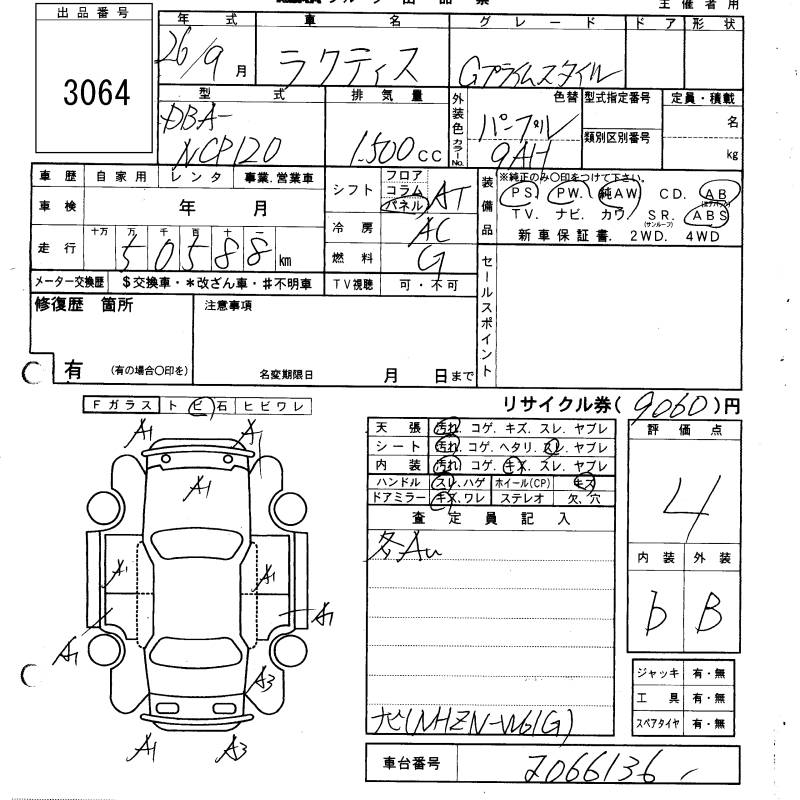 出品番号
3064
主催者用
年式 車名 グレード ドア 形状
26/9月 ラクティス Gプライムスタイル
型式 排気量 外装色 色替 型式指定番号 定員・積載
DBA-
NCP120 1.500cc パープル 名
カラーNo. 9AH 類別区別番号 kg
車歴 自家用 レンタ 事業.営業車
車検 年 月
走行 十万 万 千 百 十 一
50588km
メーター交換歴 $交換車・*改ざん車・♯不明車
シフト フロア コラム パネル AT
冷房 AC
燃料 G
TV視聴 可・不可
装備品 ※純正のみ〇印をつけて下さい。
PS. PW. 純AW CD. AB
(エアバック)
TV. ナビ. カワ. SR. ABS
(サンルーフ)
新車保証書. 2WD. 4WD
セールスポイント
修復歴 箇所
有 (有の場合〇印を)
注意事項
名変期限日 月 日まで
リサイクル券(9060)円
Fガラス トビ石 ヒビワレ
A1 A1
A1
A1 A1
A1 A1
A3
A1 A3
天張 汚れ. コゲ. キズ. スレ. ヤブレ
シート 汚れ. コゲ. ヘタリ. スレ. ヤブレ
内装 汚れ. コゲ. キズ. スレ. ヤブレ
ハンドル スレ、ハゲ ホイール(CP) キズ
ドアミラー キズ、ワレ ステレオ 欠、穴
査定員記入
各AU
ナビ(NHZN-W61G)
評価点
4
内装 外装
b B
ジャッキ 有・無
工具 有・無
スペアタイヤ 有・無
車台番号 2066136